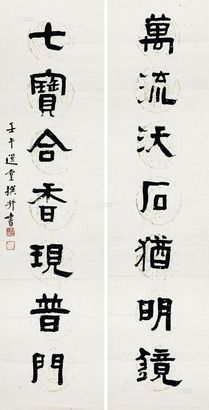 萬流沃石猶明鏡
七寶合香現普門
壬午選堂撰并書